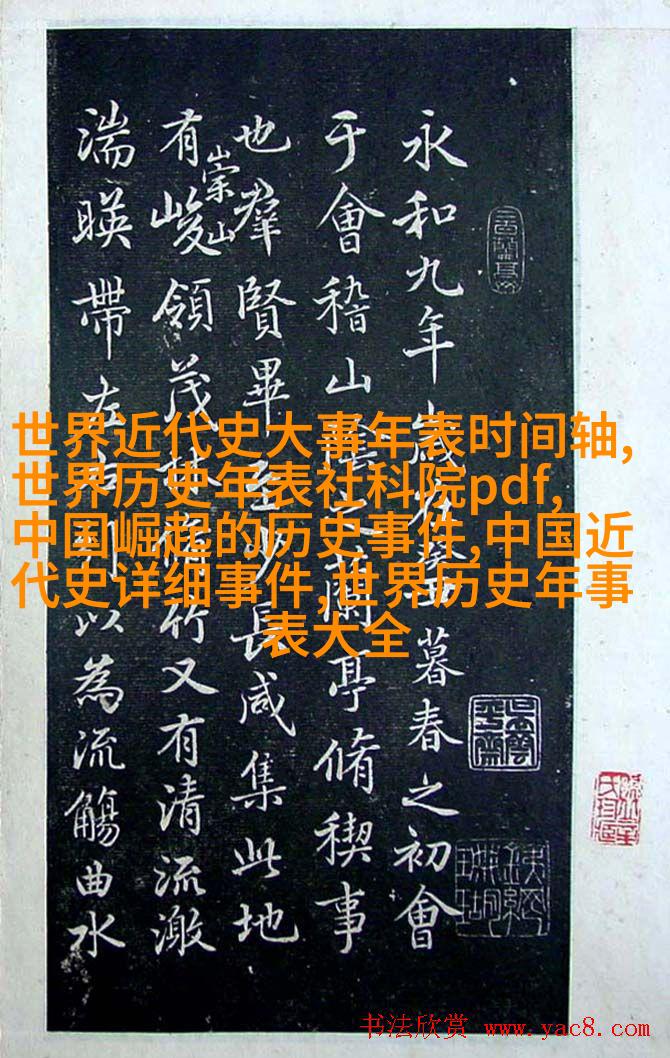 永和九年歲在癸丑暮春之初會
于會稽山陰之蘭亭脩稧事
也羣賢畢至少長咸集此地
有崇山峻領茂林脩竹又有清流激
湍暎帶左右引以為流觴曲水
世界近代史大事年表时间轴,
世界历史年表社科院pdf,
中国崛起的历史事件,中国近
代史详细事件,世界历史年事
表大全
书法欣赏 www.yac8.com